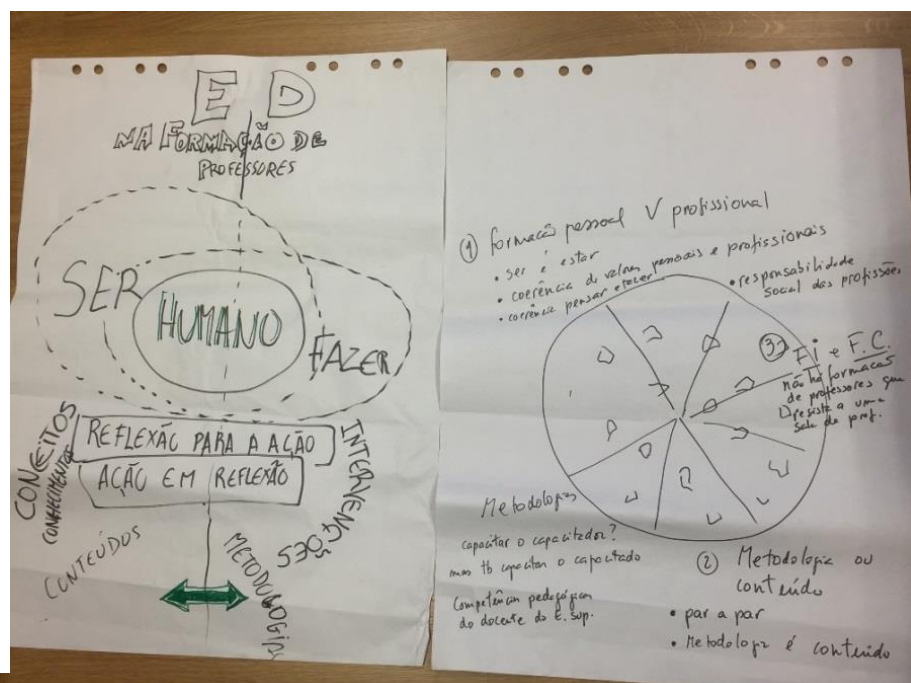 E D
NA FORMAÇÃO DE
PROFESSORES
SER
HUMANO
FAZER
REFLEXÃO PARA A AÇÃO
AÇÃO EM REFLEXÃO
CONCEITOS
CONHECIMENTOS
CONTEÚDOS
INTERVENÇÕES
METODOLOGIAS
① formação pessoal V profissional
• ser e estar
• coerência de valores pessoais e profissionais
• coerência pensar e fazer
• responsabilidade
social das profissões
③ F i e F.C.
não há formação
de professores que
resista a uma
sala de prof.
Metodologias
capacitar o capacitador?
mas tb capacitar o capacitado
Competências pedagógicas
do docente do E. Sup.
② Metodologia ou
conteúdo
• par a par
• Metodologia é conteúdo